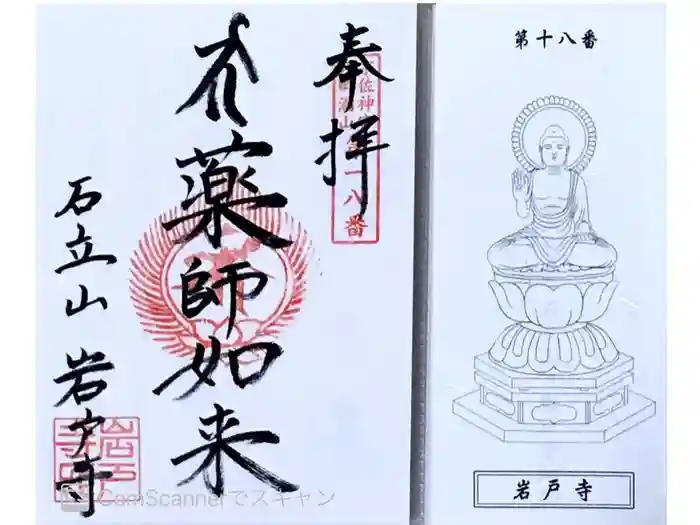 奉拝
第十八番
薬師如来
石立山 岩戸寺
岩戸寺
第十八番
岩戸寺
CamScannerでスキャン